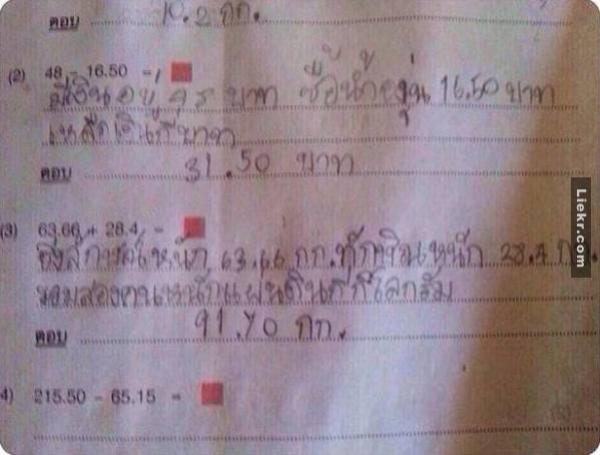 ตอบ 10.2 กก.
(2) 48 - 16.50 =
มีเงินอยู่ 48 บาท ซื้อน้ำองุ่น 16.50 บาท
เหลือเงินกี่บาท
ตอบ 31.50 บาท
(3) 63.66 + 28.4 =
63.66 กก. หนัก 28.4 กก.
รวมสองคนหนักแผ่นดินกี่กิโลกรัม
ตอบ 91.70 กก.
4) 215.50 - 65.15 =
Liekr.com